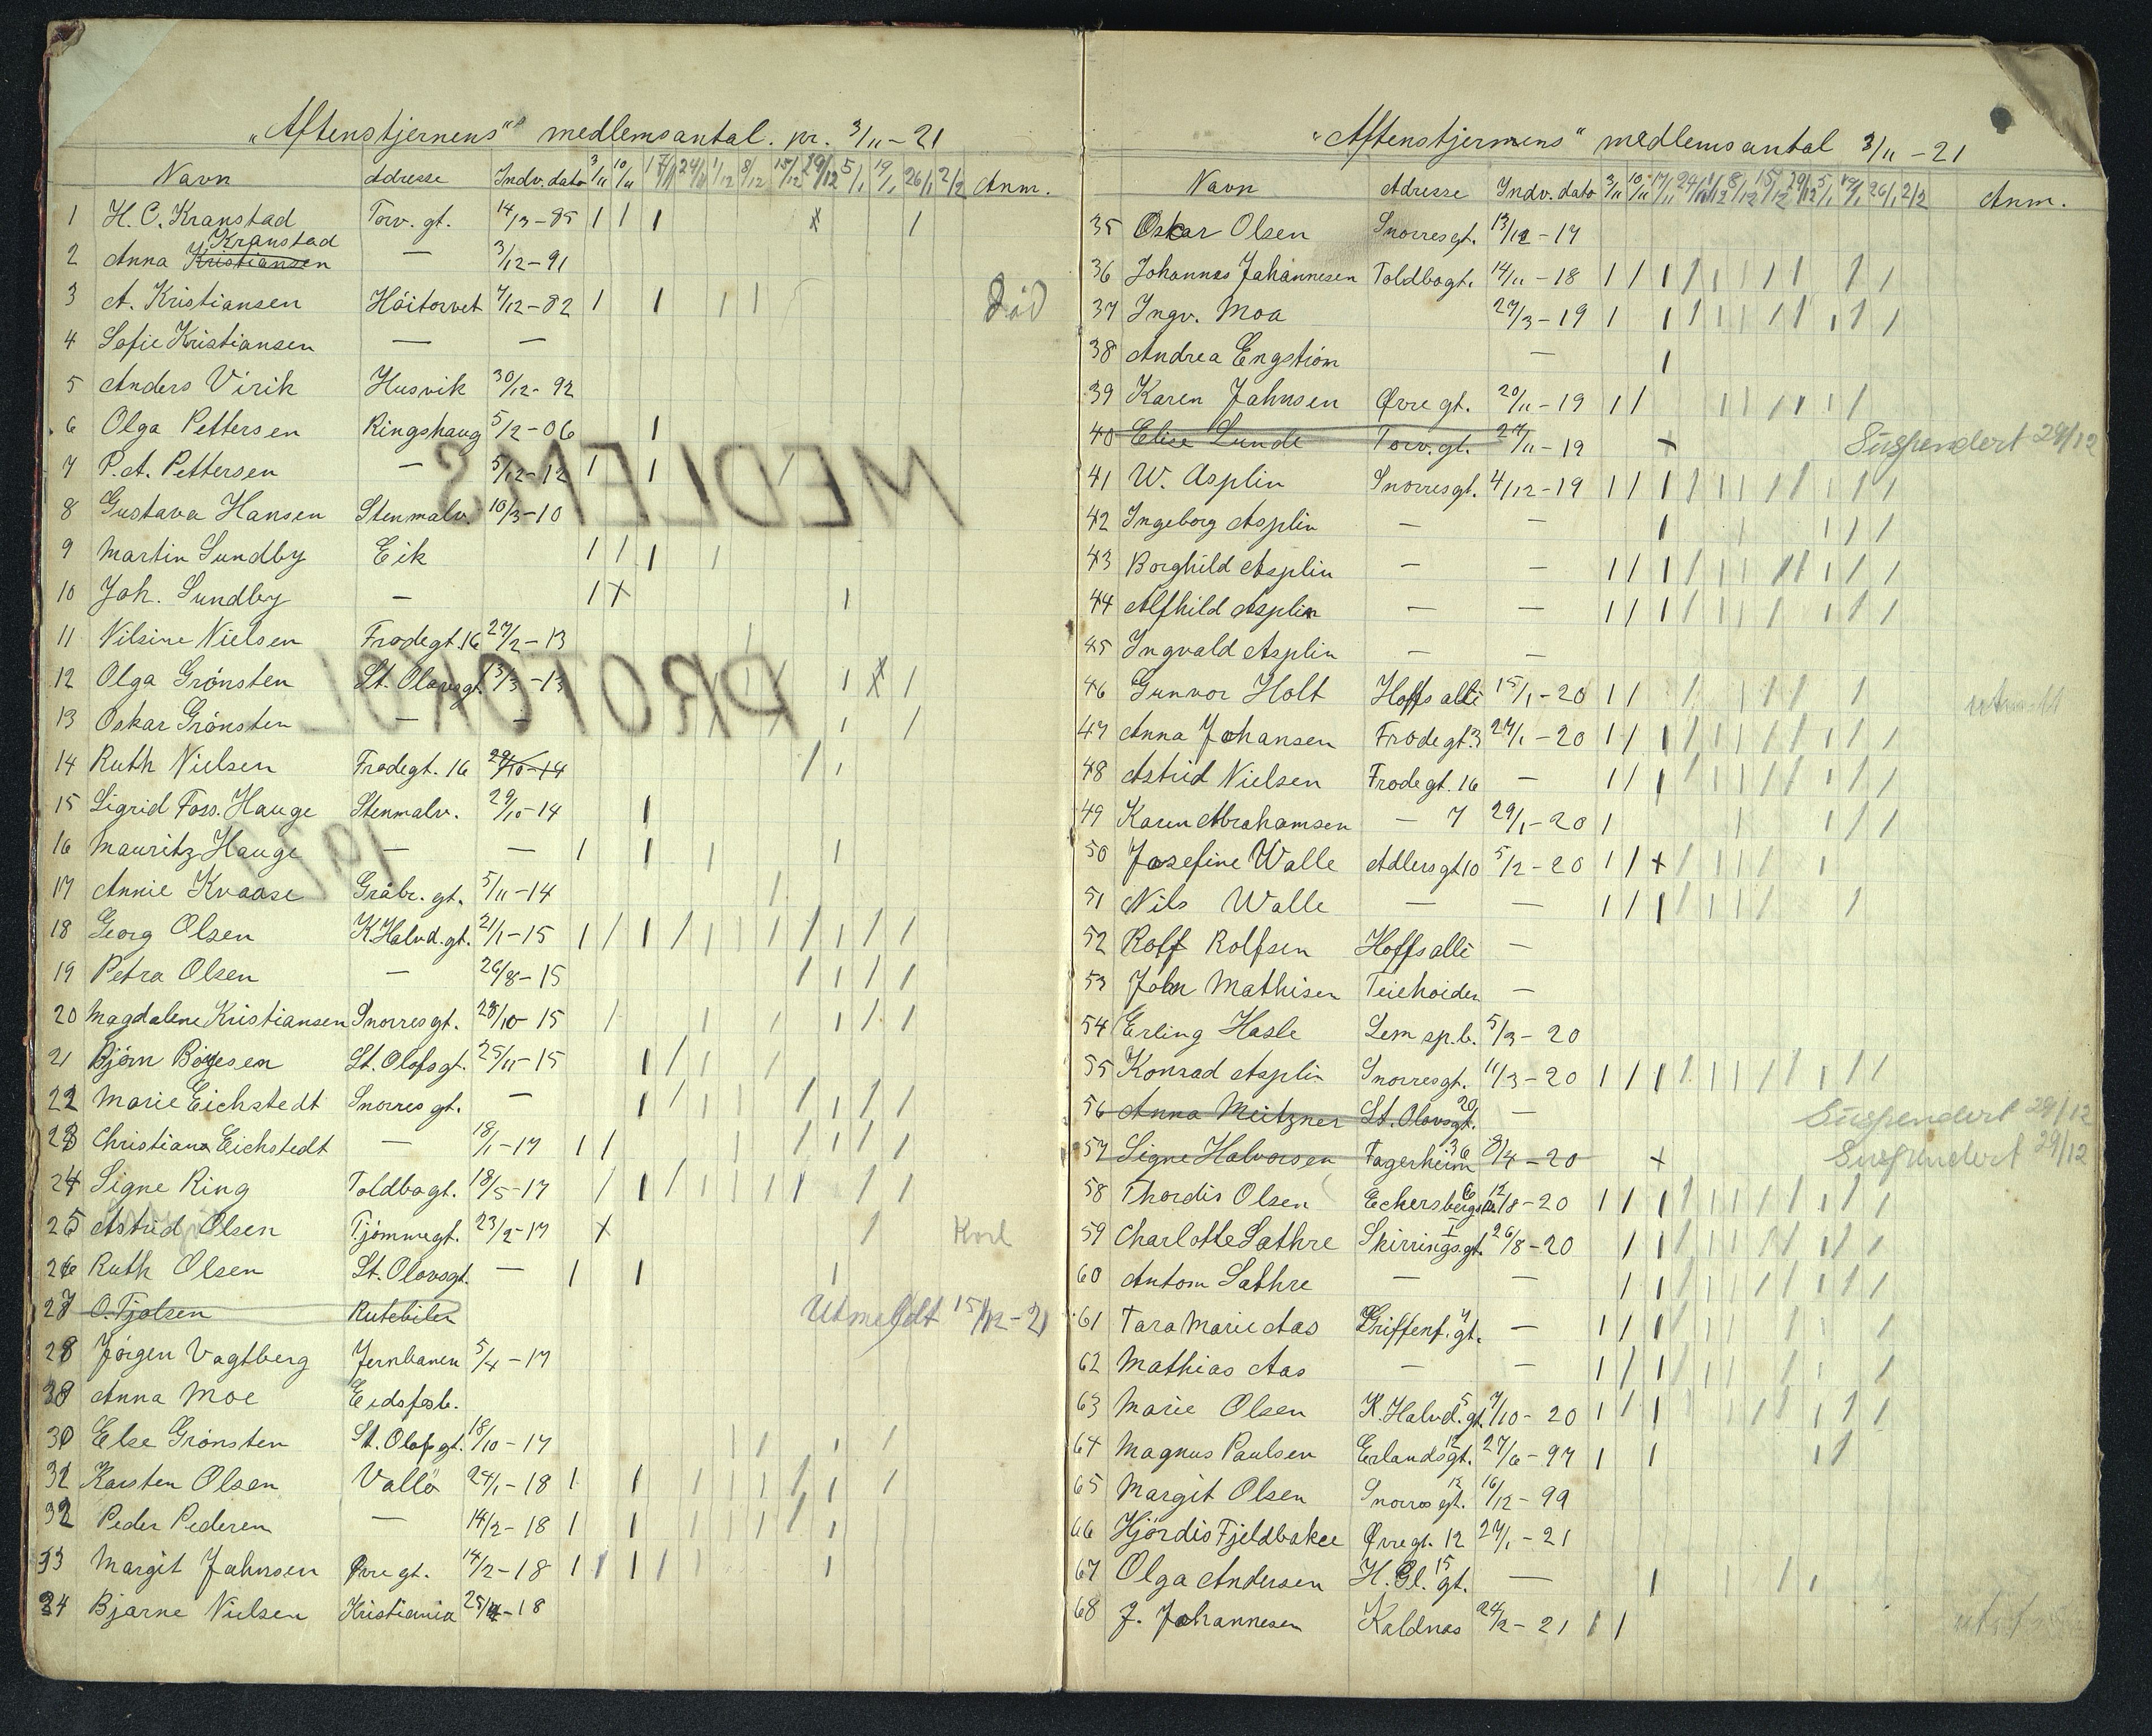 "Aftenstjernens" medlemsantal. pr. 3/11-21
Navn Adresse Indv. dato 3/11 10/11 17/11 24/11 1/12 8/12 15/12 29/12 5/1 19/1 26/1 2/2 Anm.
1 H. C. Kranstad Torv. gt. 14/3-85 1 1 1 x 1
Kranstad
2 Anna Kristiansen — 3/12-91
3 A. Kristiansen Höitorvet 7/12-82 1 1 1 1 Död
4 Sofie Kristiansen — —
5 Anders Virik Husvik 30/12-92
6 Olga Pettersen Ringshaug 5/2-06 1
7 P. A. Pettersen — 5/12-12 1 1 /
MEDLEMS
8 Gustava Hansen Stenmalv. 10/3-10
9 Martin Sundby Eik 1 / 1 1
10 Joh. Sundby — 1 x 1
11 Nilsine Nielsen Frodegt. 16 27/2-13 1
12 Olga Grönsten St. Olavsgt. 13/3-13
PROTOKOL
13 Oskar Grönsten — —
14 Ruth Nielsen Frodegt. 16 29/10-14 / 1
15 Sigrid Foss. Hauge Stenmalv. 29/10-14 1
16 Mauritz Hauge — — 1 1 1 1
192
17 Annie Kvaase Gråbr. gt. 5/11-14 /
18 Georg Olsen K. Halvd. gt. 21/1-15 1 / 1 / 1 1 / / 1 / /
19 Petra Olsen — 26/8-15 / 1 / /
20 Magdalene Kristiansen Snorresgt. 28/10-15 / 1 / 1 / /
21 Björn Böyesen St. Olafsgt. 25/11-15 1 / 1 /
22 Marie Eichstedt Snorresgt. — 1 / 1 1 / 1 / /
23 Christiana Eichstedt — 18/1-17 1 1 1 / 1 / /
24 Signe Ring Toldbogt. 18/5-17 / 1 / 1 1 / 1 / /
25 Astrid Olsen Tjömmegt. 23/2-17 x /
26 Ruth Olsen St. Olavsgt. — 1 1 1
27 O. Tjolsen Rutebiler Utmeldt 15/12-21
28 Jörgen Vagtberg Jernbanen 5/4-17
Anna Moe Eidsfosb.
30 Else Grönsten St. Olafsgt. 18/10-17 1 / 1 /
Karsten Olsen Vallö 24/1-18 1 1 1 1 1 / / 1 /
32 Peder Pedersen — 14/2-18 1 1 1 1 1 / / 1
33 Margit Jahnsen Øvre gt. 14/2-18 1 / 1 / 1 1
34 Bjarne Nielsen Kristiania
"Aftenstjernens" medlemsantal 3/11-21
Navn Adresse Indv. dato 3/11 10/11 17/11 24/11 1/12 8/12 15/12 29/12 5/1 19/1 26/1 2/2 Anm.
35 Oskar Olsen Snorresgt. 13/12-17
36 Johannes Johannesen Toldbogt. 14/11-18 1 / 1 / 1 1 / / / /
37 Ingv. Moa 27/3-19 1 1 / 1 1 / / 1 / /
38 Andrea Engström — 1
39 Karen Jahnsen Øvre gt. 20/11-19 1 / 1 1 / / 1 /
40 Elise Lunde Torv. gt. 27/11-19 x Suspendert 29/12
41 W. Asplin Snorresgt. 4/12-19 1 / 1 / 1 1 / / 1 / /
42 Ingeborg Asplin — — 1 1 1 / /
43 Borghild Asplin — — 1 / 1 / 1 1 / / 1 / /
44 Alfhild Asplin — — 1 / 1 / 1 1 / / 1 / /
45 Ingvald Asplin — —
46 Gunvor Holt Hoffs allé 15/1-20 1 / / 1 / / /
47 Anna Johansen Frodegt. 3 27/1-20 1 / 1 / 1 1 / / 1 / /
48 Astrid Nielsen Frodegt. 16 — 1 / 1 / 1 1 / / 1 / /
49 Karen Abrahamsen — 7 29/1-20 1 1 1 / /
50 Josefine Walle Adlersgt 10 5/2-20 1 / x / 1 1 / 1
51 Nils Walle — — 1 / 1 / 1 1 / /
52 Rolf Rolfsen Hoffs allé —
53 John Mathisen Teiehöiden —
54 Erling Hasle Sem sp.b. 5/3-20
55 Konrad Asplin Snorresgt. 11/3-20 1 / 1 / 1 1 / / 1 / /
56 Anna Meitzner St. Olavsgt. 20 — Suspendert 29/12
57 Signe Halvorsen Fagerheim 36 8/4-20 x Suspendert 29/12
58 Thordis Olsen 1 / 1 / 1 1 / / 1 / /
59 Charlotte Sathre Skiringsgt. 1 26/8-20 / 1 / 1 1 / / 1 / /
60 Antom Sathre — — / 1 / 1 1 / / 1 / /
61 Tara Marie Aas Griffenf. gt. 7 — 1 / 1 / 1 1 / 1 /
62 Mathias Aas — — 1 / 1 / 1 1 / 1 /
63 Marie Olsen K. Halvd. gt. 5 7/10-20 1 / 1 / / 1 / /
64 Magnus Paulsen Erlandsgt. 27/6-97 1 1 1 /
65 Margit Olsen Snorres gt. 12 16/12-99
66 Hjördis Fjeldbakee Øvregt. 12 27/1-21
67 Olga Andersen H. Gl. gt. 15 — 1 1 / 1
68 J. Johannesen Kaldnas 24/2-21 1 1